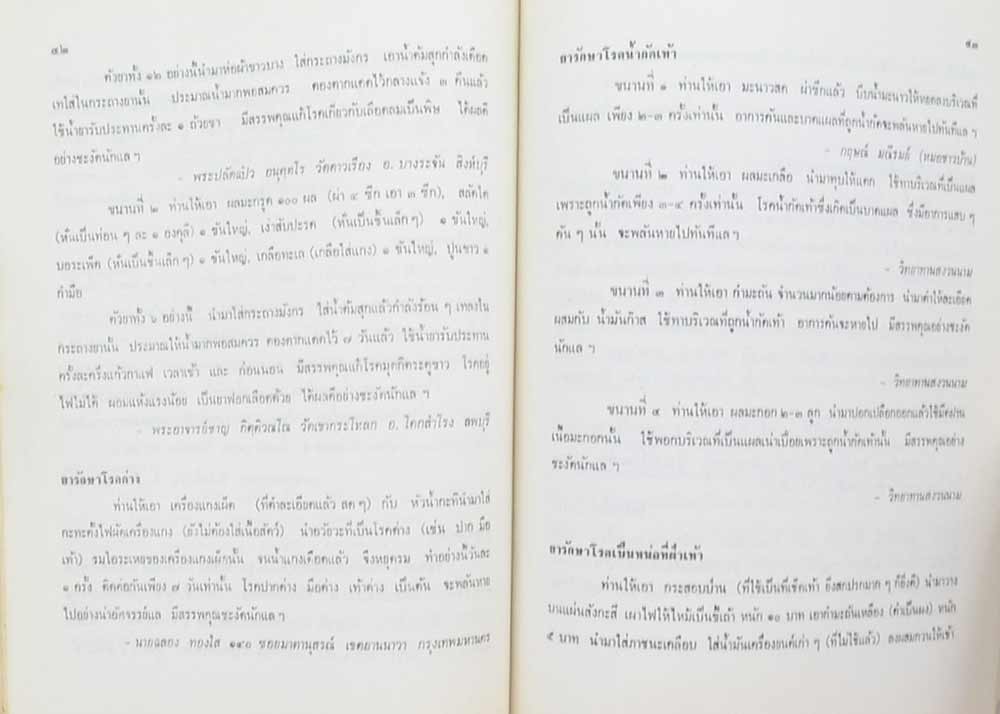 ๔๒
ตัวยาทั้ง ๑๒ อย่างนี้นำมาห่อผ้าขาวบาง ใส่กระถางมังกร เอาน้ำต้มสุกกำลังเดือด
เทใส่ในกระถางยานั้น ประมาณน้ำมากพอสมควร ดองตากแดดไว้กลางแจ้ง ๓ คืนแล้ว
ใช้น้ำยารับประทานครั้งละ ๑ ถ้วยชา มีสรรพคุณแก้โรคเกี่ยวกับเลือดลมเป็นพิษ ได้ผลดี
อย่างชะงัดนักแล ฯ
- พระปลัดเปิว อนุตฺตโร วัดดาวเรือง อ. บางระจัน สิงห์บุรี
ขนานที่ ๒ ท่านให้เอา ผลมะกรูด ๑๐๐ ผล (ผ่า ๔ ซีก เอา ๓ ซีก), สลัดได
(หั่นเป็นท่อน ๆ ละ ๑ องคุลี) ๑ ขันใหญ่, เง่าสับปะรด (หั่นเป็นชิ้นเล็ก ๆ) ๑ ขันใหญ่,
บอระเพ็ด (หั่นเป็นชิ้นเล็ก ๆ) ๑ ขันใหญ่, เกลือทะเล (เกลือใส่แกง) ๑ ขันใหญ่, ปูนขาว ๑
กำมือ
ตัวยาทั้ง ๖ อย่างนี้ นำมาใส่กระถางมังกร ใส่น้ำต้มสุกแล้วกำลังร้อน ๆ เทลงใน
กระถางยานั้น ประมาณให้น้ำมากพอสมควร ดองตากแดดไว้ ๗ วันแล้ว ใช้น้ำยารับประทาน
ครั้งละครึ่งแก้วกาแฟ เวลาเช้า และ ก่อนนอน มีสรรพคุณแก้โรคมุตกิดระดูขาว โรคอยู่
ไฟไม่ได้ ผอมแห้งแรงน้อย เป็นยาฟอกเลือดด้วย ได้ผลดีอย่างชะงัดนักแล ฯ
- พระอาจารย์ชาญ กิตฺติวณฺโณ วัดเขากระโหลก อ. โคกสำโรง ลพบุรี
ยารักษาโรคด่าง
ท่านให้เอา เครื่องแกงเผ็ด (ที่ตำละเอียดแล้ว สด ๆ) กับ หัวน้ำกะทินำมาใส่
กะทะตั้งไฟผัดเครื่องแกง (ยังไม่ต้องใส่เนื้อสัตว์) นำอวัยวะที่เป็นโรคด่าง (เช่น ปาก มือ
เท้า) รมไอระเหยของเครื่องแกงเผ็ดนั้น จนน้ำแกงเดือดแล้ว จึงหยุดรม ทำอย่างนี้วันละ
๑ ครั้ง ติดต่อกันเพียง ๗ วันเท่านั้น โรคปากด่าง มือด่าง เท้าด่าง เป็นต้น จะพลันหาย
ไปอย่างน่าอัศจรรย์แล มีสรรพคุณชะงัดนักแล ฯ
- นายฉลอง ทองใส ๑๔๐ ซอยมาตานุสรณ์ เขตยานนาวา กรุงเทพมหานคร
๔๓
ยารักษาโรคน้ำกัดเท้า
ขนานที่ ๑ ท่านให้เอา มะนาวสด ผ่าซีกแล้ว บีบน้ำมะนาวให้หยดลงบริเวณที่
เป็นแผล เพียง ๒-๓ ครั้งเท่านั้น อาการคันและบาดแผลที่ถูกน้ำกัดจะพลันหายไปทันทีแล ฯ
- กฤษณ์ มณีรมต์ (หมอชาวบ้าน)
ขนานที่ ๒ ท่านให้เอา ผลมะเกลือ นำมาทุบให้แตก ใช้ทาบริเวณที่เป็นแผล
เพราะถูกน้ำกัดเพียง ๓-๔ ครั้งเท่านั้น โรคน้ำกัดเท้าซึ่งเกิดเป็นบาดแผล ซึ่งมีอาการแสบ ๆ
คัน ๆ นั้น จะพลันหายไปทันทีแล ฯ
- วิทยาทานสงวนนาม
ขนานที่ ๓ ท่านให้เอา กำมะถัน จำนวนมากน้อยตามต้องการ นำมาตำให้ละเอียด
ผสมกับ น้ำมันก๊าส ใช้ทาบริเวณที่ถูกน้ำกัดเท้า อาการคันจะหายไป มีสรรพคุณอย่างชะงัด
นักแล ฯ
- วิทยาทานสงวนนาม
ขนานที่ ๔ ท่านให้เอา ผลมะกอก ๒-๓ ลูก นำมาปอกเปลือกออกแล้วใช้มีดฝาน
เนื้อมะกอกนั้น ใช้พอกบริเวณที่เป็นแผลเน่าเปื่อยเพราะถูกน้ำกัดเท้านั้น มีสรรพคุณอย่าง
ชะงัดนักแล ฯ
- วิทยาทานสงวนนาม
ยารักษาโรคเป็นหน่อที่ฝ่าเท้า
ท่านให้เอา กระสอบป่าน (ที่ใช้เป็นที่เช็ดเท้า ยิ่งสกปรกมาก ๆ ก็ยิ่งดี) นำมาวาง
บนแผ่นสังกะสี เผาไฟให้ไหม้เป็นขี้เถ้า หนัก ๑๐ บาท เอากำมะถันเหลือง (ตำเป็นผง) หนัก
๕ บาท นำมาใส่ภาชนะเคลือบ ใส่น้ำมันเครื่องยนต์เก่า ๆ (ที่ไม่ใช้แล้ว) ลงผสมกวนให้เข้า